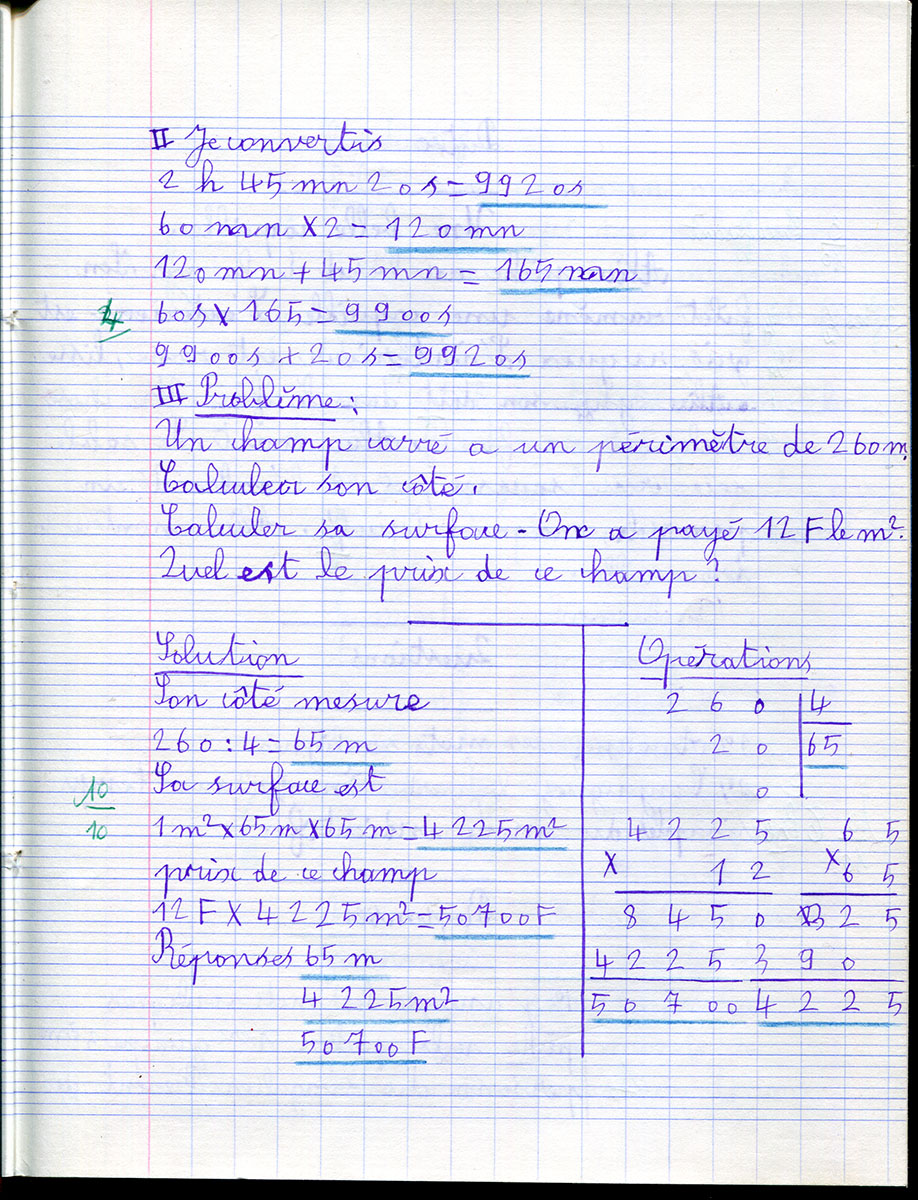 II Je convertis
2 h 45 mn 20 s = 9920s
60 mn X 2 = 120 mn
120 mn + 45 mn = 165 mn
4 60s X 165 = 9900s
9900s + 20s = 9920s
III Problème :
Un champ carré a un périmètre de 260m.
Calculer son côté.
Calculer sa surface - On a payé 12 F le m².
Quel est le prix de ce champ ?
Solution
Son côté mesure
260 : 4 = 65 m
Sa surface est
10
10
1m² x 65m x 65m = 4225m²
prix de ce champ
12F X 4225m² = 50700F
Réponses 65 m
4 225m²
50700F
Opérations
2 6 0 4
2 0 65
0
4 2 2 5 6 5
X 1 2 X 6 5
8 4 5 0 3 2 5
4 2 2 5 3 9 0
5 0 7 0 0 4 2 2 5